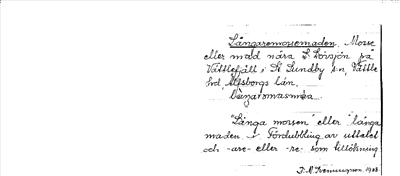 Långaromossemaden. Mosse
eller mad nära S. Lövsjön på
Vättlefjäll i St. Lundby s:n, Vättle
hd, Älfsborgs län.
"Långa mossen" eller "långa
maden". Fördubbling av uttalet
och -are- eller -re- som tillökning
1908